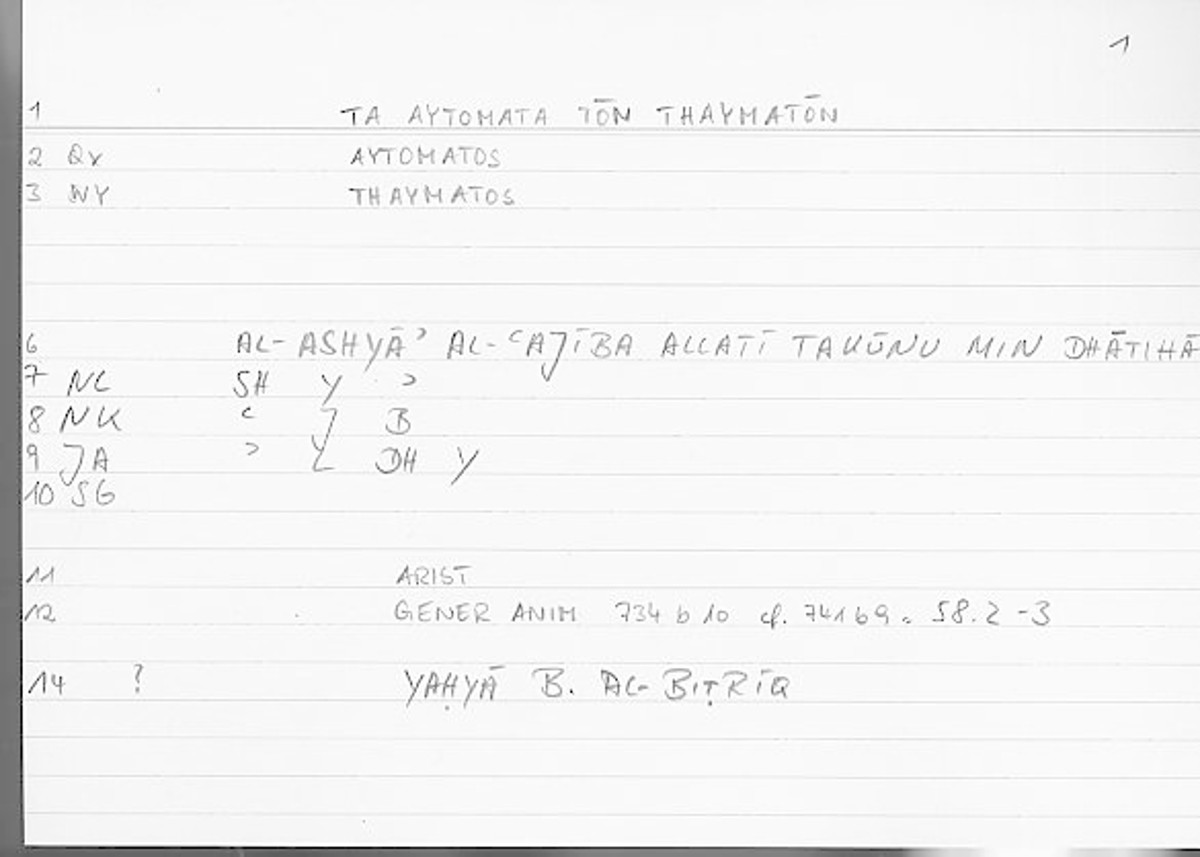 1
1 TA AYTOMATA TŌN THAYMATŌN
2 Qv AYTOMATOS
3 NY THAYMATOS
6 AL-ASHYĀʾ AL-ʿAJĪBA ALLATĪ TAKŪNU MIN DHĀTIHĀ
7 NL SH Y ʾ
8 NK ʿ J B
9 JA ʾ Y L DH Y
10 SG
11 ARIST
12 GENER ANIM 734 b 10 cf. 741 b 9 = 58.2-3
14 ? YAḤYĀ B. AL-BIṬRĪQ